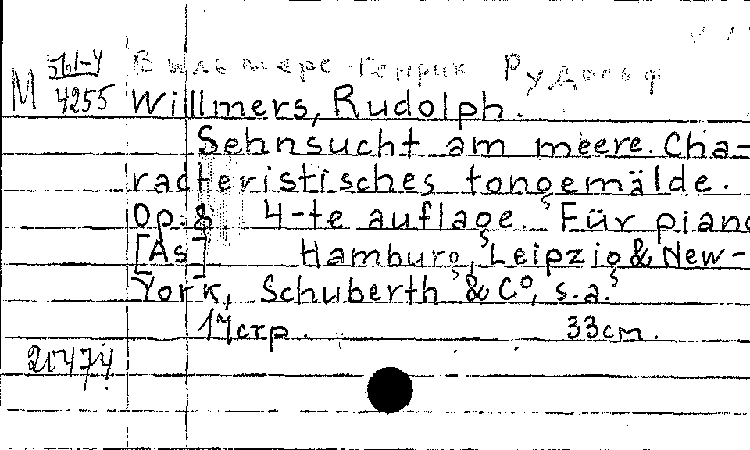 М 561-4 Вильмерс Генрих Рудольф
4255 Willmers, Rudolph.
Sehnsucht am meere. Cha-
racteristisches tongemälde.
Op.8 4-te auflage. Für piano
[As] Hamburg, Leipzig & New-
York, Schuberth & C°, s.a.
17стр. 33cm.
20474